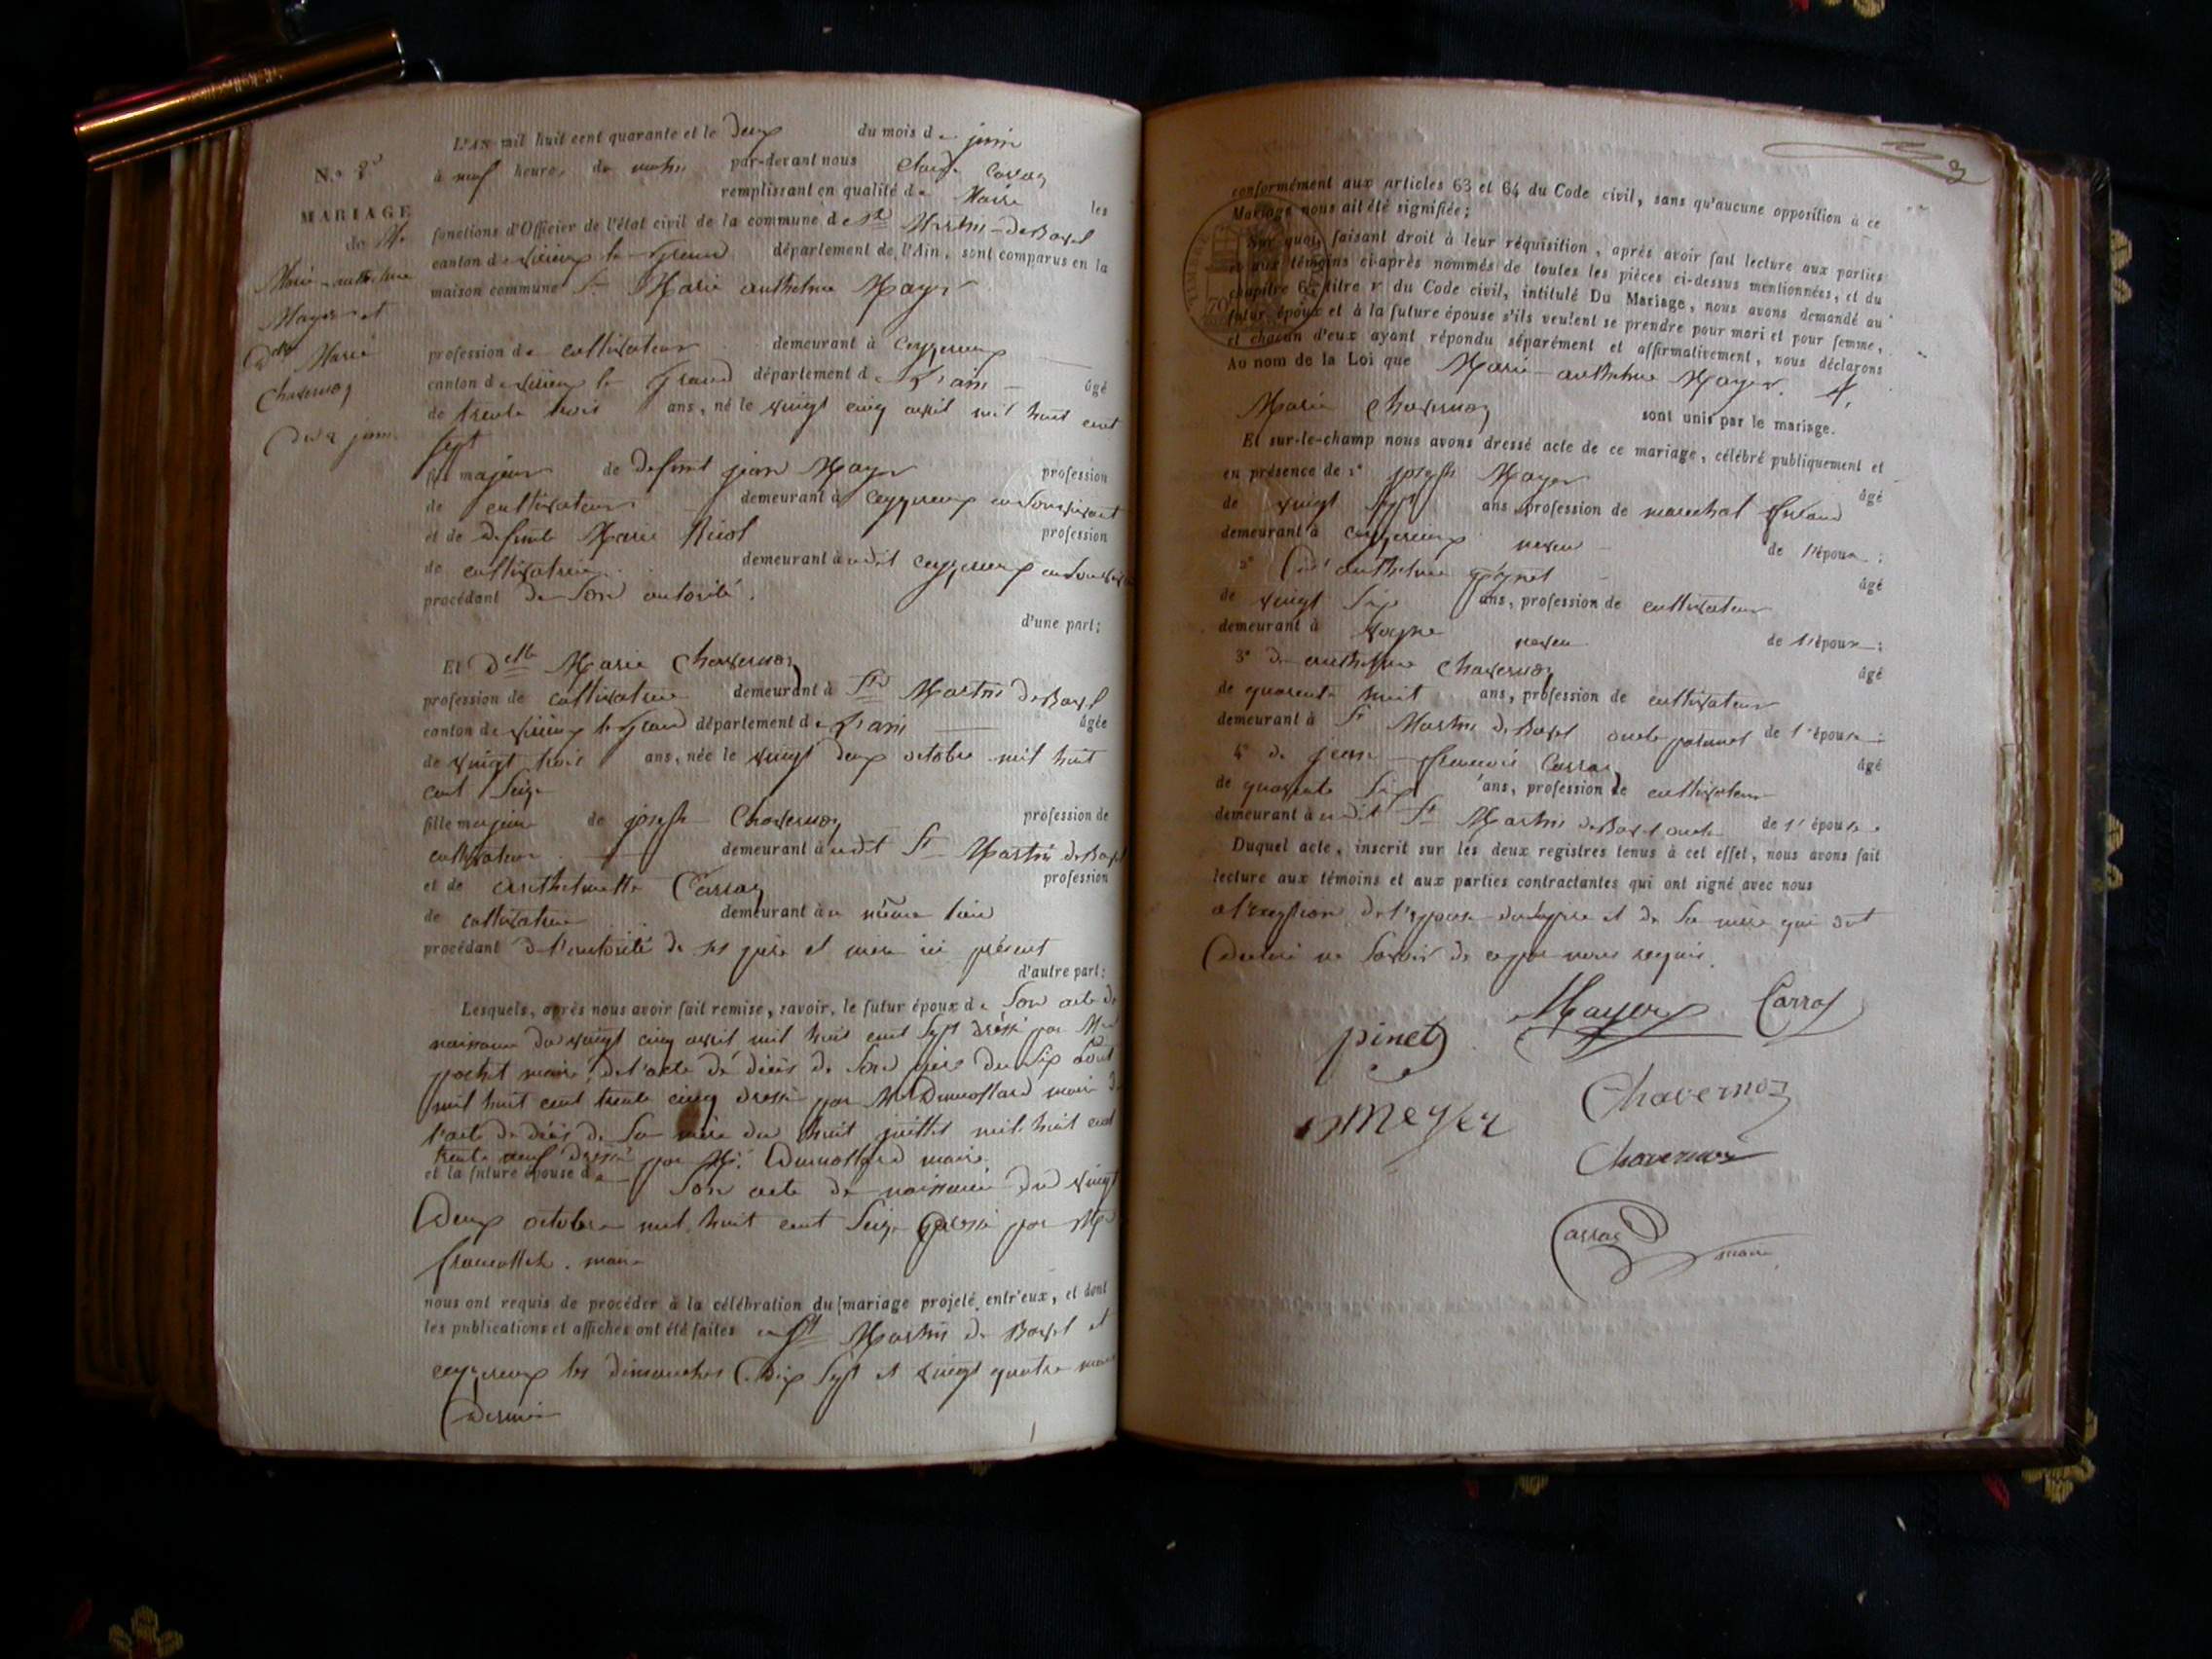 L'AN mil huit cent quarante et le deux du mois de juin
à neuf heures du matin par-devant nous Claude Carraz
remplissant en qualité de Maire les
fonctions d'Officier de l'état civil de la commune de St Martin-de Bavel
canton de virieux le grand département de l'Ain, sont comparus en la
maison commune Sr Marie anthelme Mayer
profession de cultivateur demeurant à ceyzerieux
canton de virieux le Grand département de L'ain âgé
de trente trois ans, né le vingt cinq avril mil huit cent
sept
fils majeur de defunt jean Mayer profession
de cultivateur demeurant à ceyzerieux en Son vivant
et de defunte Marie profession
de cultivatrice demeurant à udit ceyzerieux en Son
procédant de Son autorité.
d'une part;
Et Delle Marie Chavernoz
profession de cultivatrice demeurant à St Martin de Bavel
canton de virieux le grand département de L'ain âgée
de vingt trois ans, née le vingt deux octobre mil huit
cent Seize
fille majeure de joseph Chavernoz profession de
cultivateur demeurant à udit St Martin de Bavel
et de anthelmette Carraz profession
de cultivatrice demeurant à u même lieu
procédant de l'autorité de ses père et mère ici présent
d'autre part;
Lesquels, après nous avoir fait remise, savoir, le futur époux de Son acte de
naissance du vingt cinq avril mil huit cent Sept dressé par Mr
maire, de l'acte de décès de Son père du Six août
mil huit cent trente cinq dressé par Mr Dumollard maire de
l'acte de décès de Sa mère du huit juillet mil huit cent
trente neuf dressé par Mr. Dumollard maire
et la future épouse de Son acte de naissance du vingt
Deux octobre mil huit cent Seize dressé par Mr
maire
nous ont requis de procéder à la célébration du mariage projeté entr'eux, et dont
les publications et affiches ont été faites à St Martin de Bavel et
ceyzerieux les dimanches Dix Sept et vingt quatre mai
Dernier
N.° 2°
MARIAGE
de Mr
Marie-anthelme
Mayer et
Delle Marie
Chavernoz
Du 2 juin
3
conformément aux articles 63 et 64 du Code civil, sans qu'aucune opposition à ce
Mariage nous ait été signifiée;
Sur quoi, faisant droit à leur réquisition, après avoir fait lecture aux parties
et aux témoins ci-après nommés de toutes les pièces ci-dessus mentionnées, et du
chapitre 6, titre v du Code civil, intitulé Du Mariage, nous avons demandé au
futur époux et à la future épouse s'ils veulent se prendre pour mari et pour femme,
et chacun d'eux ayant répondu séparément et affirmativement, nous déclarons
Au nom de la Loi que Marie-anthelme Mayer et
Marie Chavernoz sont unis par le mariage.
Et sur-le-champ nous avons dressé acte de ce mariage, célébré publiquement et
en présence de 1° joseph Mayer âgé
de vingt Sept ans, profession de marechal ferrand
demeurant à ceyzerieux neveu de l'époux;
2° anthelme pynet âgé
de vingt Six ans, profession de cultivateur
demeurant à neveu de l'époux;
3° de anthelme Chavernoz âgé
de quarente huit ans, profession de cultivateur
demeurant à St Martin de Bavel oncle paternel de l'épouse;
4° de jean-francois Carraz âgé
de quarente Six ans, profession de cultivateur
demeurant à udit St Martin de Bavel oncle de l'épouse.
Duquel acte, inscrit sur les deux registres tenus à cet effet, nous avons fait
lecture aux témoins et aux parties contractantes qui ont signé avec nous
a l'exception de l'epouse du père et de Sa mère qui ont
Declaré ne Savoir de ce par nous requis.
Mayer Carraz
pinet
Chavernoz
meyer
Chavernoz
Carraz
maire